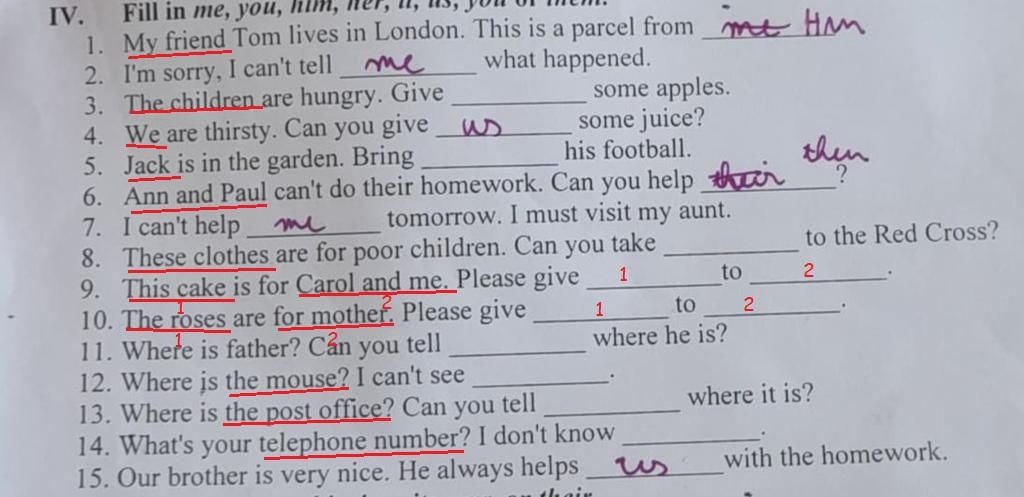 IV. Fill in me, you, him, her, it, us, you or them.
1. My friend Tom lives in London. This is a parcel from me Him
2. I'm sorry, I can't tell me what happened.
3. The children are hungry. Give ________ some apples.
4. We are thirsty. Can you give us some juice?
5. Jack is in the garden. Bring ________ his football.
them
6. Ann and Paul can't do their homework. Can you help their ?
7. I can't help me tomorrow. I must visit my aunt.
8. These clothes are for poor children. Can you take ________ to the Red Cross?
9. This cake is for Carol and me. Please give 1 to 2.
1 2
10. The roses are for mother. Please give 1 to 2.
1 2
11. Where is father? Can you tell ________ where he is?
12. Where is the mouse? I can't see ________.
13. Where is the post office? Can you tell ________ where it is?
14. What's your telephone number? I don't know ________.
15. Our brother is very nice. He always helps us with the homework.